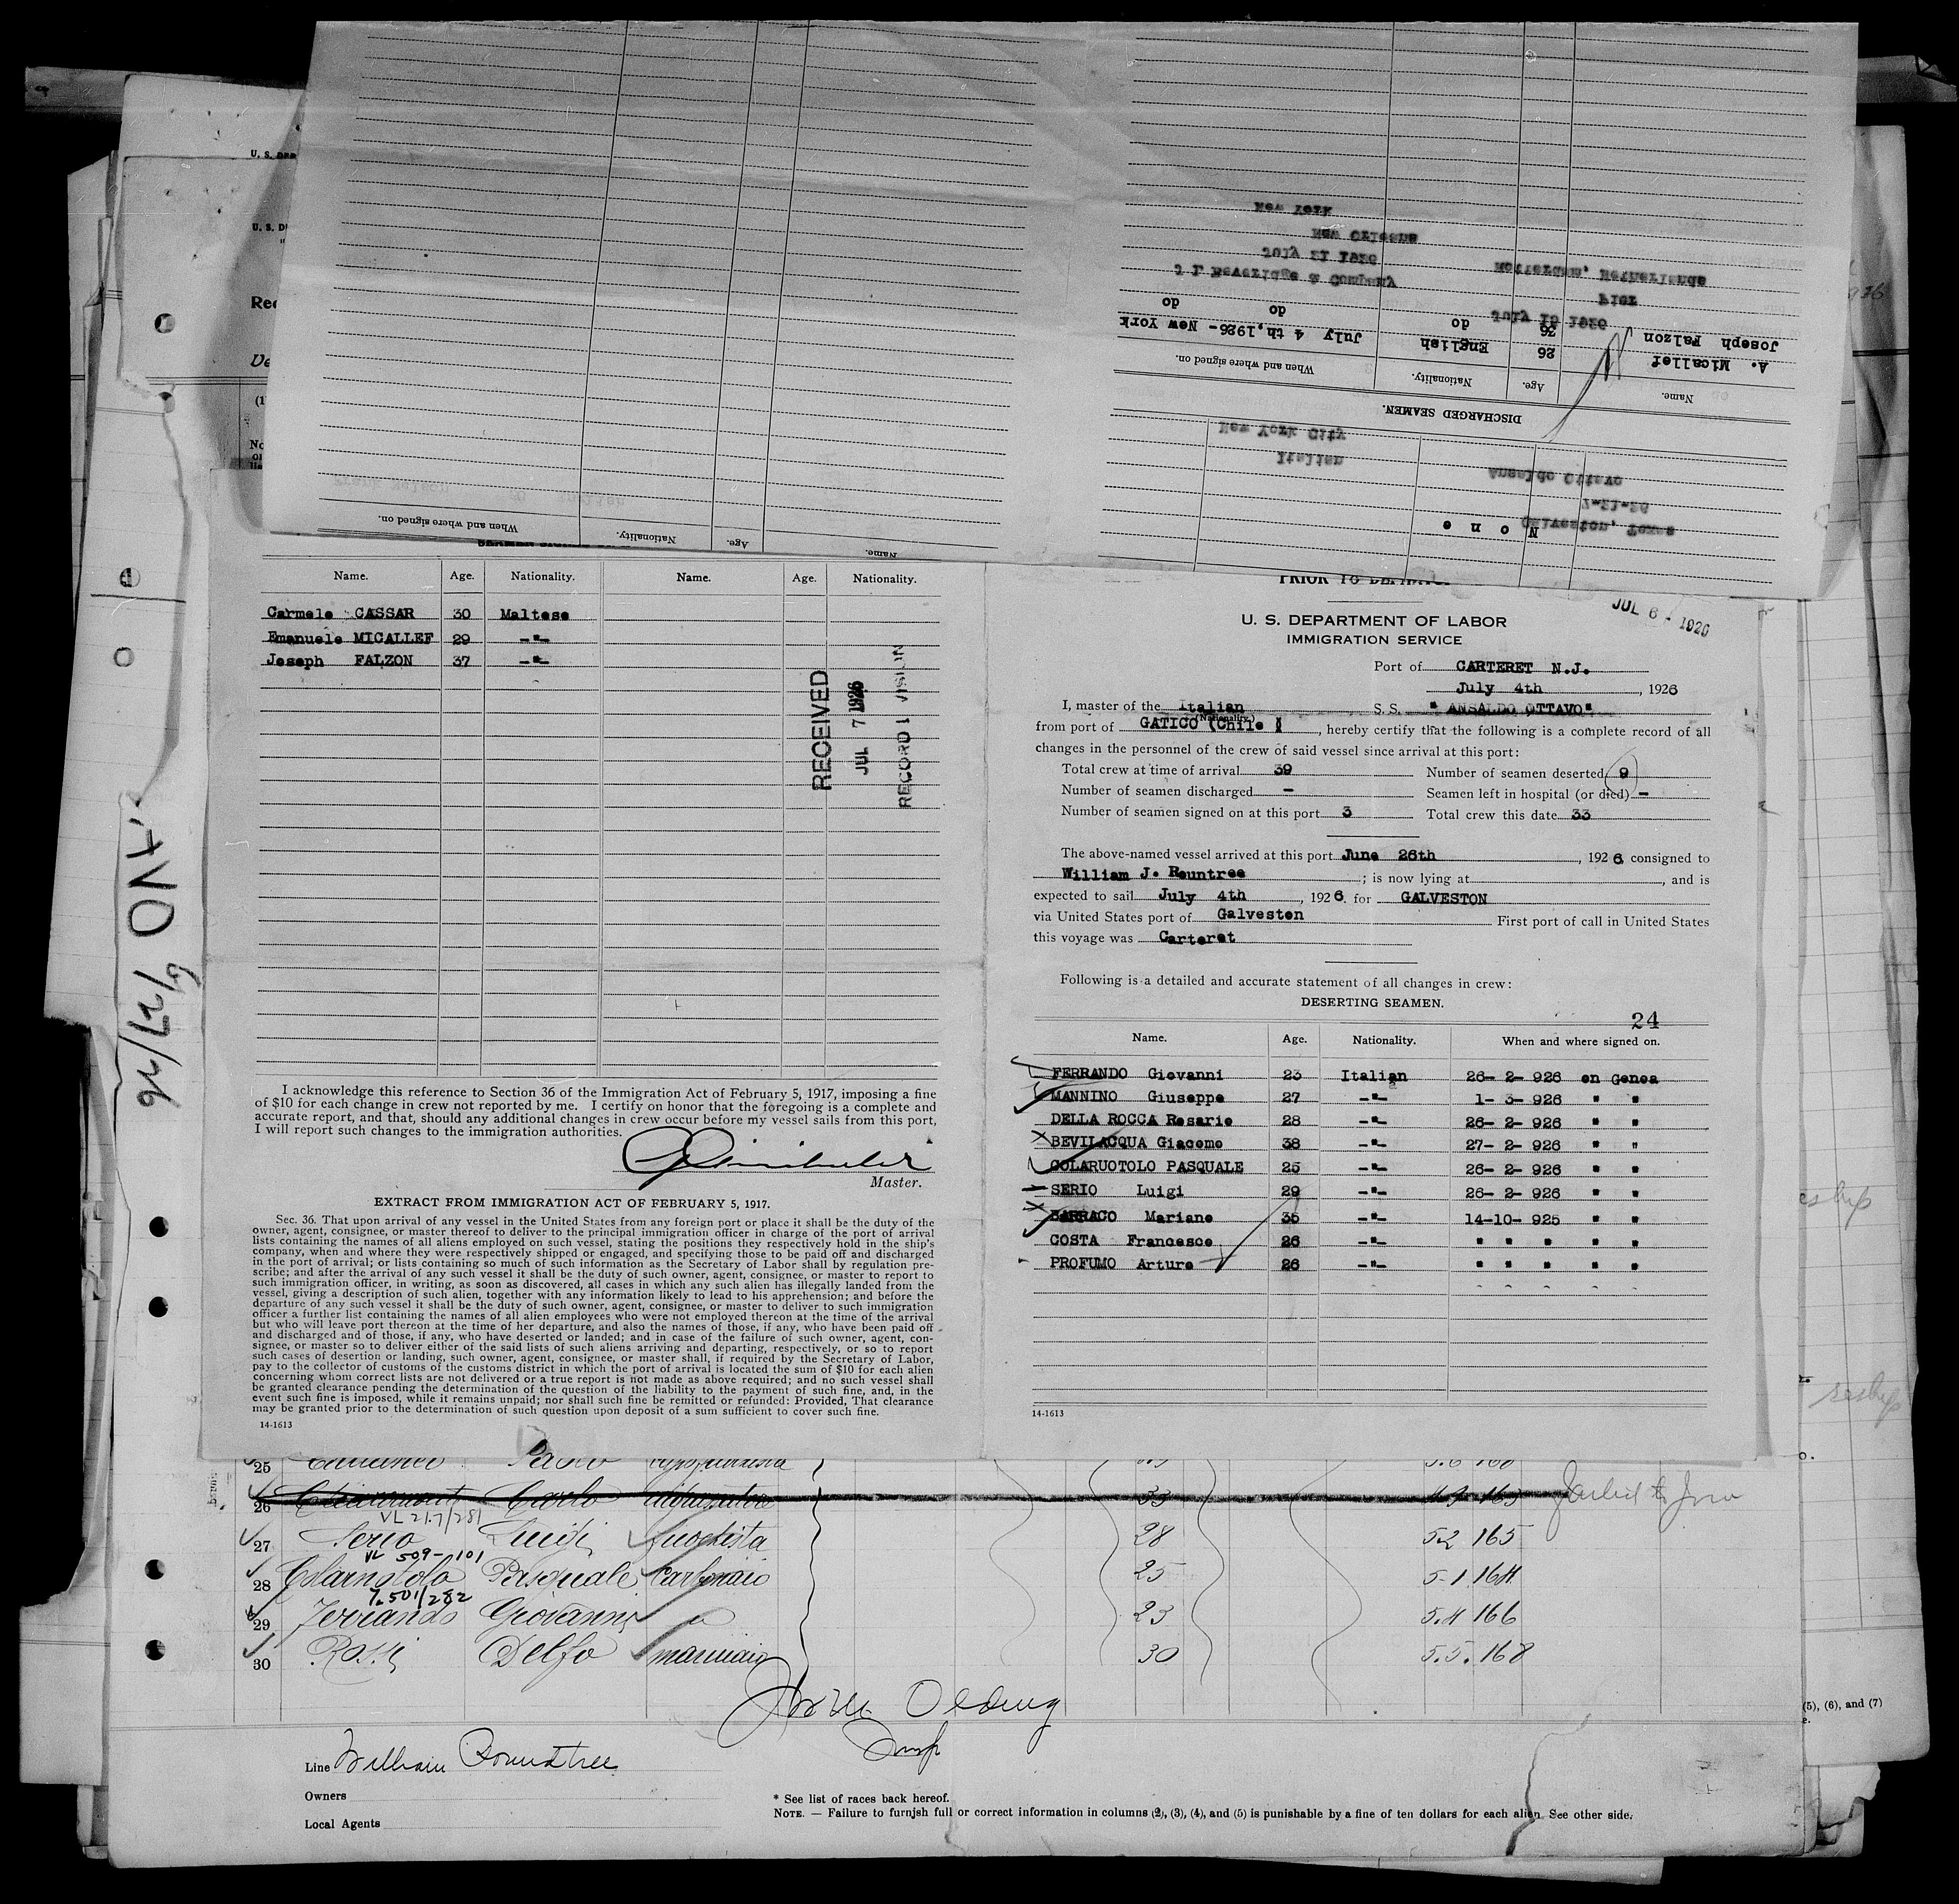 U. S. DEP
U. S. D
Rec
Ve
(1
No
New York
New Orleans
July 21 1926
J P Beveridge & Company
Rotterdam, Netherlands
Pier
July 19 1926
A. Micallef 26 English July 4 th, 1926- New York
Joseph Falzon 36 do do do
Name. Age. Nationality. When and where signed on.
DISCHARGED SEAMEN.
New York City
Italian
Ansaldo Ottavo
7-21-26
Galveston, Texas
N o n e
Name. Age. Nationality. When and where signed on.
Name. Age. Nationality. Name. Age. Nationality.
Carmelo CASSAR 30 Maltese
Emanuele MICALLEF 29 -"-
Joseph FALZON 37 -"-
RECEIVED
JUL 7 1926
RECORD DIVISION
I acknowledge this reference to Section 36 of the Immigration Act of February 5, 1917, imposing a fine
of $10 for each change in crew not reported by me. I certify on honor that the foregoing is a complete and
accurate report, and that, should any additional changes in crew occur before my vessel sails from this port,
I will report such changes to the immigration authorities.
Master.
EXTRACT FROM IMMIGRATION ACT OF FEBRUARY 5, 1917.
Sec. 36. That upon arrival of any vessel in the United States from any foreign port or place it shall be the duty of the
owner, agent, consignee, or master thereof to deliver to the principal immigration officer in charge of the port of arrival
lists containing the names of all aliens employed on such vessel, stating the positions they respectively hold in the ship's
company, when and where they were respectively shipped or engaged, and specifying those to be paid off and discharged
in the port of arrival; or lists containing so much of such information as the Secretary of Labor shall by regulation pre-
scribe; and after the arrival of any such vessel it shall be the duty of such owner, agent, consignee, or master to report to
such immigration officer, in writing, as soon as discovered, all cases in which any such alien has illegally landed from the
vessel, giving a description of such alien, together with any information likely to lead to his apprehension; and before the
departure of any such vessel it shall be the duty of such owner, agent, consignee, or master to deliver to such immigration
officer a further list containing the names of all alien employees who were not employed thereon at the time of the arrival
but who will leave port thereon at the time of her departure, and also the names of those, if any, who have been paid off
and discharged and of those, if any, who have deserted or landed; and in case of the failure of such owner, agent, con-
signee, or master so to deliver either of the said lists of such aliens arriving and departing, respectively, or so to report
such cases of desertion or landing, such owner, agent, consignee, or master shall, if required by the Secretary of Labor,
pay to the collector of customs of the customs district in which the port of arrival is located the sum of $10 for each alien
concerning whom correct lists are not delivered or a true report is not made as above required; and no such vessel shall
be granted clearance pending the determination of the question of the liability to the payment of such fine, and, in the
event such fine is imposed, while it remains unpaid; nor shall such fine be remitted or refunded: Provided, That clearance
may be granted prior to the determination of such question upon deposit of a sum sufficient to cover such fine.
14-1613
PRIOR TO DEPARTURE
JUL 6 - 1926
U. S. DEPARTMENT OF LABOR
IMMIGRATION SERVICE
Port of CARTERET N.J.
July 4th, 1926
I, master of the Italian S. S. " ANSALDO OTTAVO"
(Nationality)
from port of GATICO (Chile ), hereby certify that the following is a complete record of all
changes in the personnel of the crew of said vessel since arrival at this port:
Total crew at time of arrival 39 Number of seamen deserted 9
Number of seamen discharged - Seamen left in hospital (or died) -
Number of seamen signed on at this port 3 Total crew this date 33
The above-named vessel arrived at this port June 26th, 1926 consigned to
William J. Rountree; is now lying at , and is
expected to sail July 4th, 1926. for GALVESTON
via United States port of Galveston First port of call in United States
this voyage was Carteret
Following is a detailed and accurate statement of all changes in crew:
DESERTING SEAMEN.
24
Name. Age. Nationality. When and where signed on.
FERRANDO Giovanni 23 Italian 26- 2- 926 en Genoa
MANNINO Giuseppe 27 -"- 1- 3- 926 " "
DELLA ROCCA Rosario 28 -"- 26- 2- 926 " "
BEVILACQUA Giacomo 38 -"- 27- 2- 926 " "
COLARUOTOLO PASQUALE 25 -"- 26- 2- 926 " "
SERIO Luigi 29 -"- 26- 2- 926 " "
BARRACO Mariano 35 -"- 14-10- 925 " "
COSTA Francesco 26 -"- " " " " "
PROFUMO Arturo 26 -"- " " " " "
14-1613
25 Paolo
26 Carlo 33 165
VL 217/281
27 Serio Luigi fuochista 28 52 165
VL 509-101
28 Colarnotolo Pasquale Carbonaio 25 5-1 164
7.501/282
29 Ferrando Giovanni " 23 5.4 166
30 Rossi Delfo marinaio 30 5.5. 168
Line William Roundtree
Owners
Local Agents
* See list of races back hereof.
NOTE. — Failure to furnish full or correct information in columns (2), (3), (4), and (5) is punishable by a fine of ten dollars for each alien. See other side.
(5), (6), and (7)